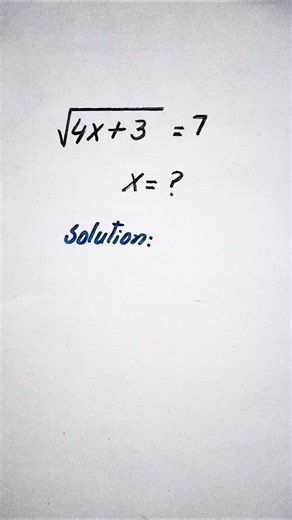 √4x+3 = 7
x = ?
Solution: